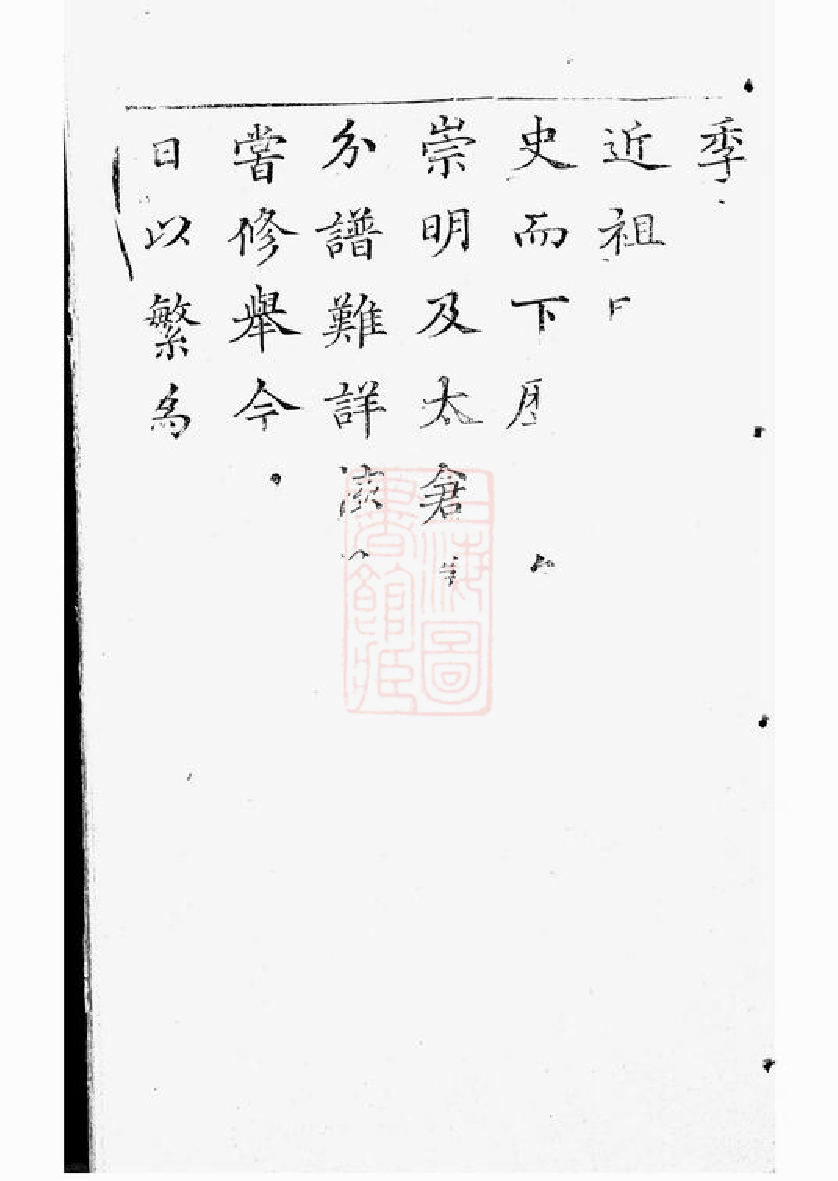 季
近祖
史而下
崇明及太倉
分譜難詳
嘗修舉今
日以繁為
上海圖
書館藏